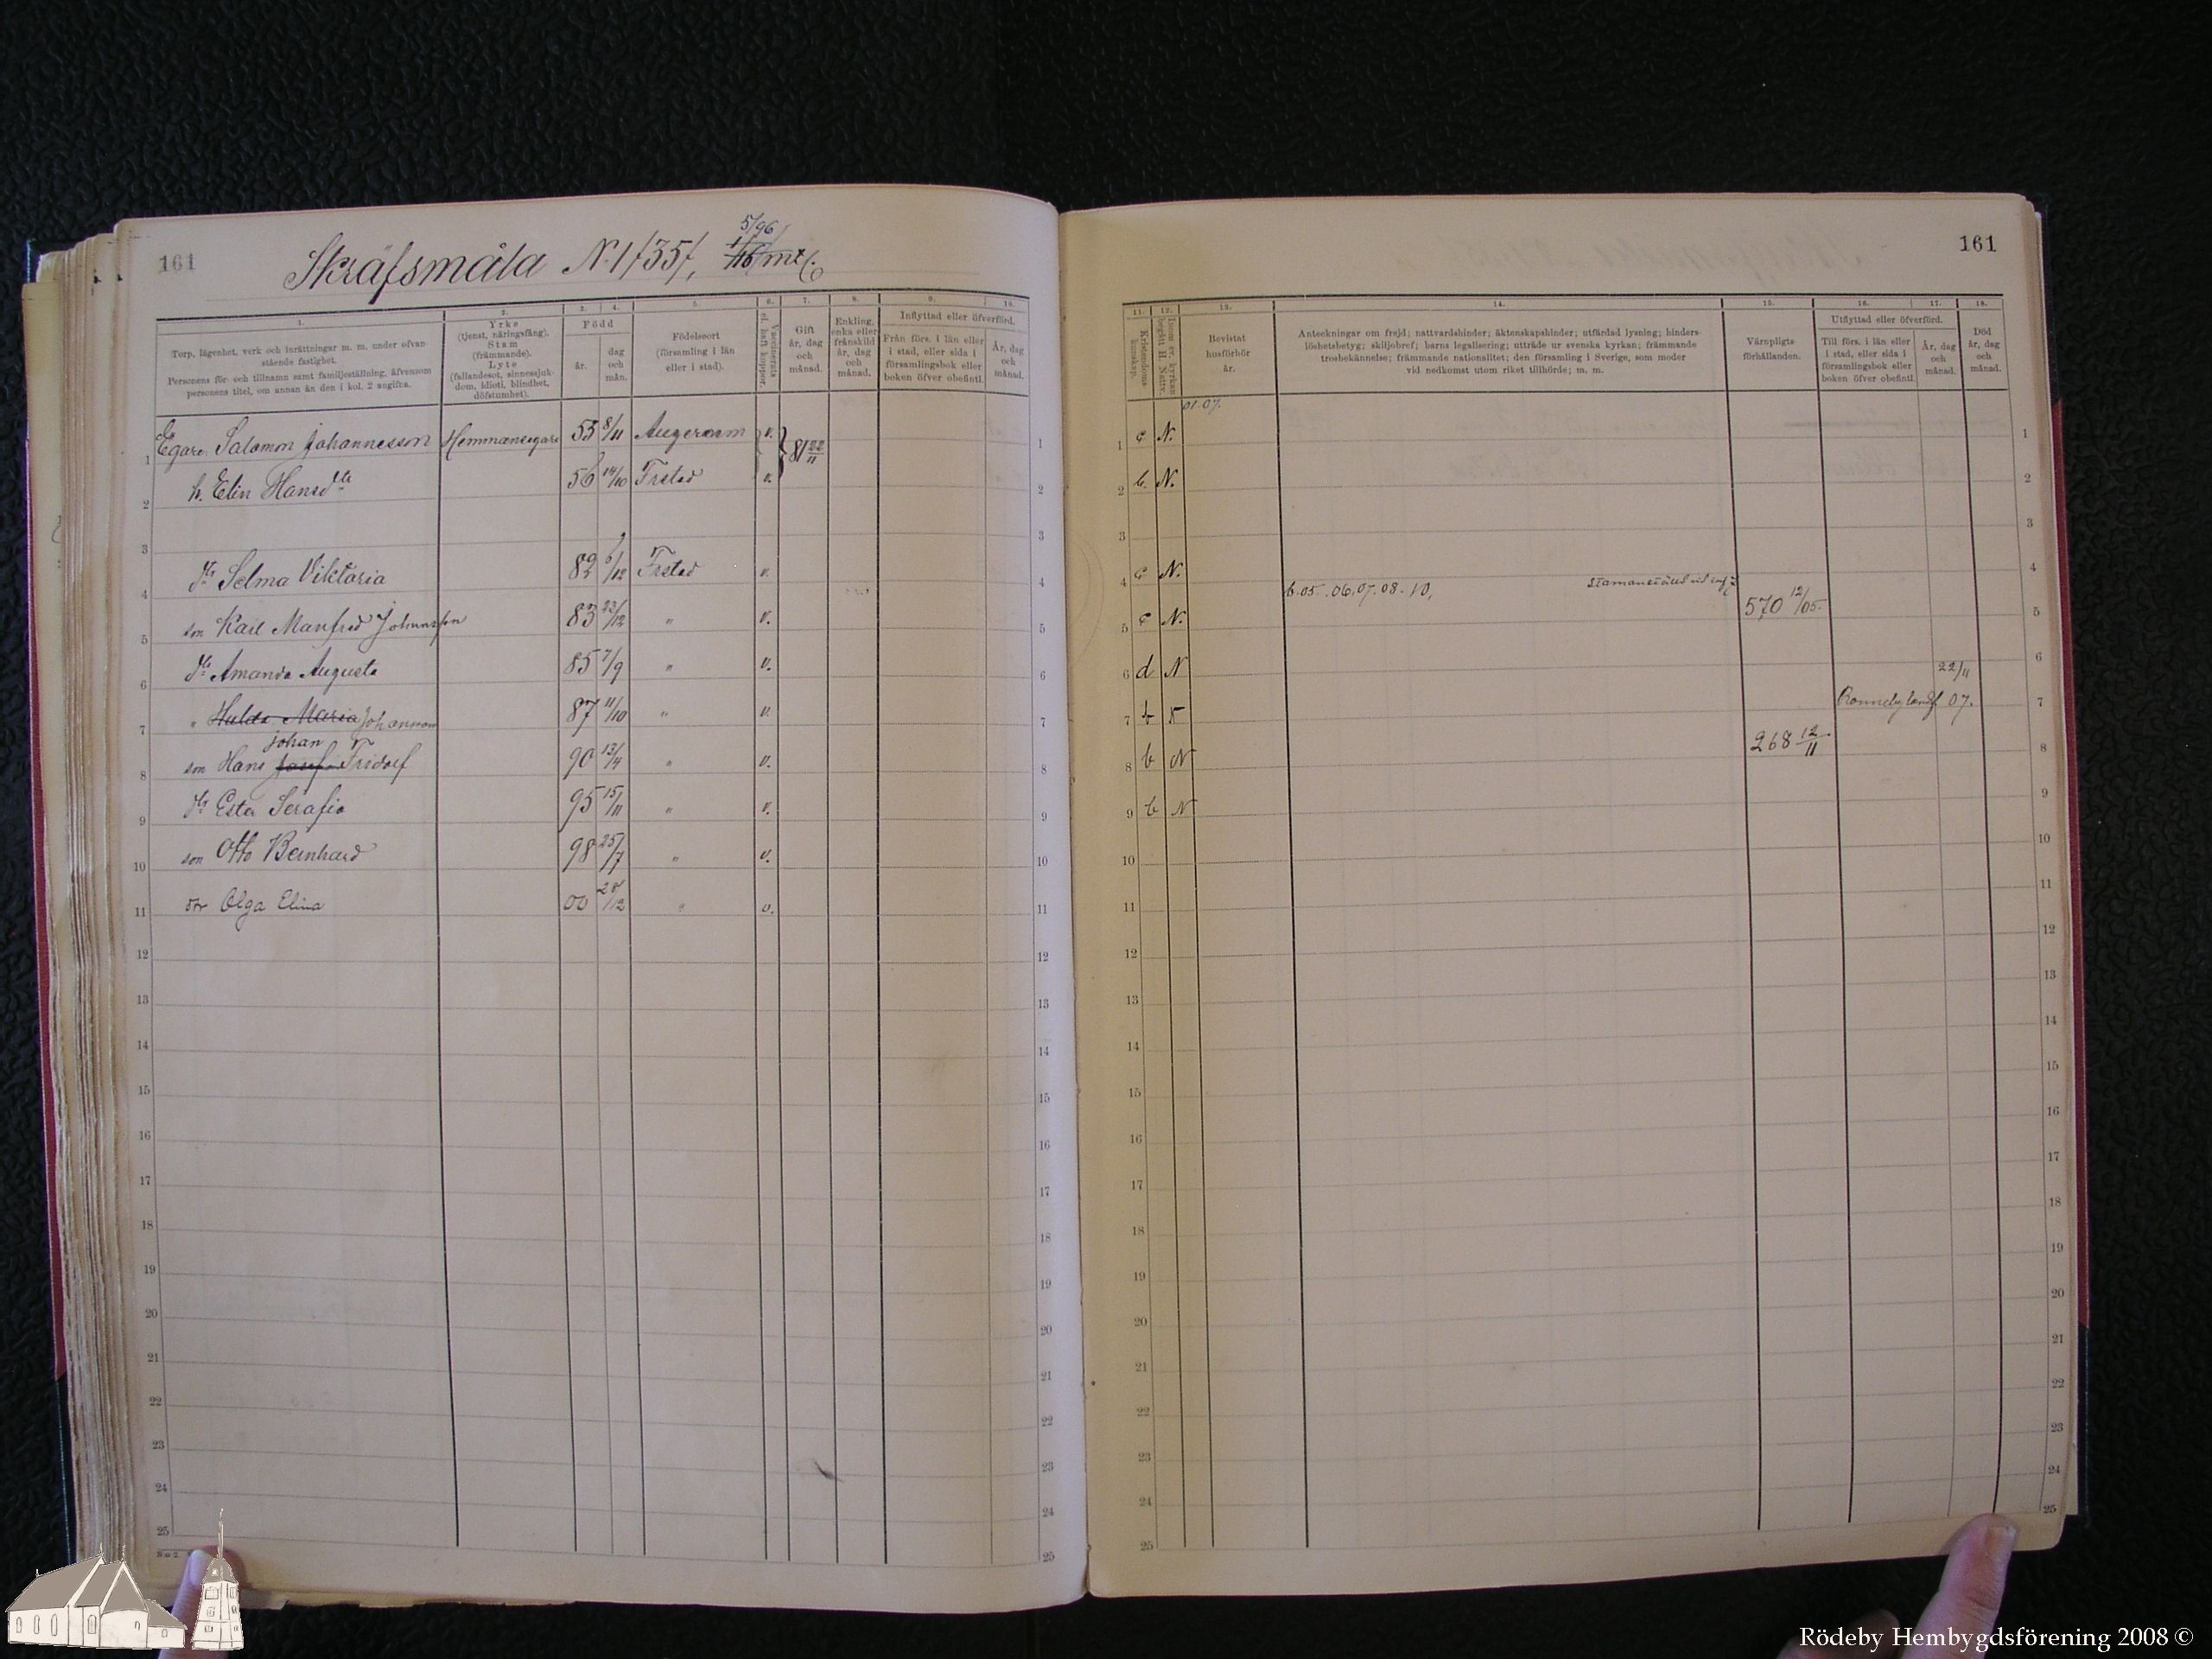 161
Skräfsmåla N:1 /35/, 5/96 1/16 mtl.
1. 2. 3. 4. 5. 6. 7. 8. 9. 10.
Torp, lägenhet, verk och inrättningar m. m. under ofvan stående fastighet.
Personens för- och tillnamn samt familjeställning, äfvensom personens titel, om annan än den i kol. 2 angifna.
Yrke
(tjenst, näringsfång).
Stam
(främmande).
Lyte
(fallandesot, sinnessjukdom, idioti, blindhet, döfstumhet).
Född
år.
dag och mån.
Födelseort
(församling i län eller i stad).
Vaccinerats el. haft koppor.
Gift år, dag och månad.
Enkling, enka eller frånskild år, dag och månad.
Inflyttad eller öfverförd.
Från förs. i län eller i stad, eller sida i församlingsbok eller boken öfver obefintl.
År, dag och månad.
1 Egare Salomon Johannesson Hemmansegare 53 8/11 Augerum v. 81 22/11 1
2 h. Elin Hansdtr 56 14/10 Frstad v. 2
3 3
4 dtr Selma Viktoria 82 6/12 Frstad v. 4
5 son Karl Manfred Johansson 83 23/12 " v. 5
6 dtr Amanda Augusta 85 7/9 " v. 6
7 " Hulda Maria Johansson 87 11/10 " v. 7
Johan
8 son Hans Josef Fridolf 90 13/4 " v. 8
9 dtr Ester Serafia 95 15/11 " v. 9
10 son Otto Bernhard 98 25/7 " v. 10
11 dtr Olga Elina 00 28/12 " v. 11
12 12
13 13
14 14
15 15
16 16
17 17
18 18
19 19
20 20
21 21
22 22
23 23
24 24
25 25
161
11. 12. 13. 14. 15. 16. 17. 18.
Kristendomskunskap.
Inom sv. kyrkan begått H. Nattv.
Bevistat husförhör år.
Anteckningar om frejd; nattvardshinder; äktenskapshinder; utfärdad lysning; hinderslöshetsbetyg; skiljobref; barns legalisering; utträde ur svenska kyrkan; främmande trosbekännelse; främmande nationalitet; den församling i Sverige, som moder vid nedkomst utom riket tillhörde; m. m.
Värnpligts förhållanden.
Utflyttad eller öfverförd.
Till förs. i län eller i stad, eller sida i församlingsbok eller boken öfver obefintl.
År, dag och månad.
Död år, dag och månad.
01.07.
1 c N. 1
2 b. N. 2
3 3
4 c N. 4
b.05. .06.07.08. 10.
5 c N. 570 12/05. 5
6 d N 6
7 b Ronneby landsf 22/11 07. 7
8 b N 268 12/11 8
9 b N 9
10 10
11 11
12 12
13 13
14 14
15 15
16 16
17 17
18 18
19 19
20 20
21 21
22 22
23 23
24 24
25 25
Rödeby Hembygdsförening 2008 ©